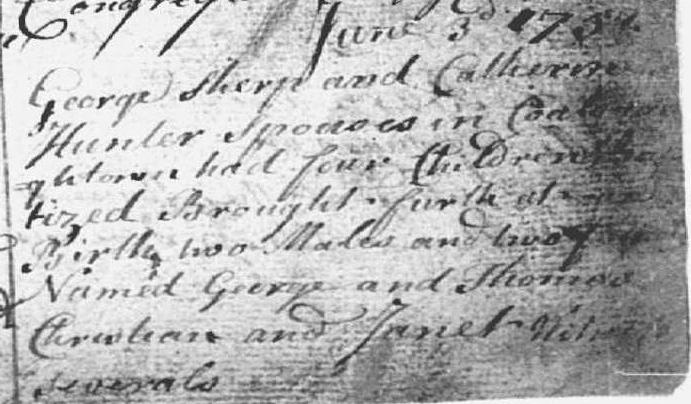 Congreg
June 3d 173
George Sherp and Catherin
Hunter Spouses in Coa
ghtown had four Children
tized Brought furth at
Birth two Males and two
Named George and Thomas
Christian and Janet Witn
Severals